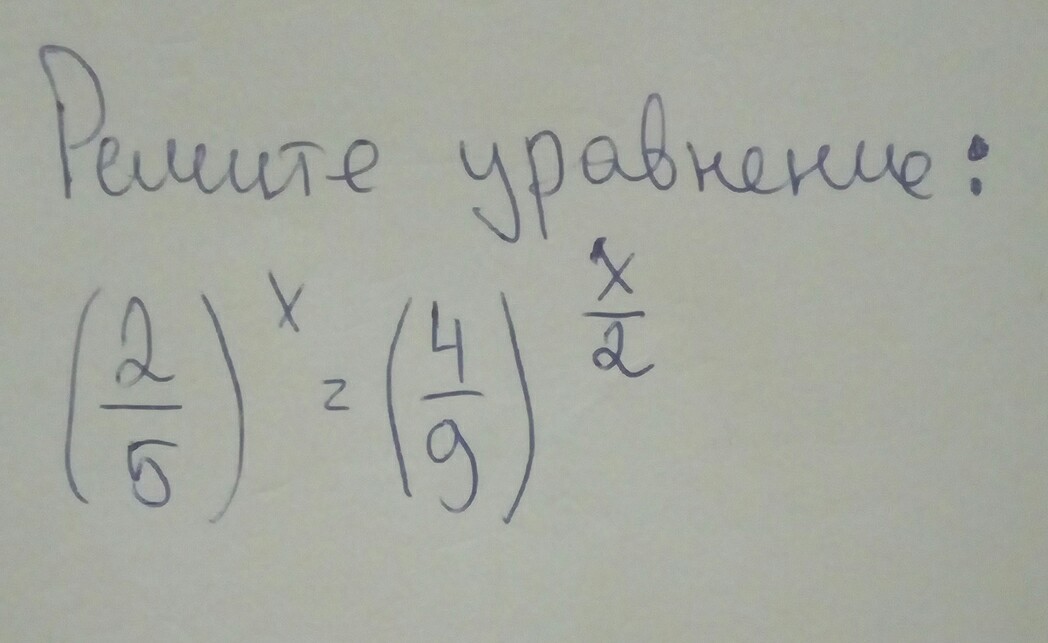 Решите уравнение:
(2/5)^x = (4/9)^(x/2)